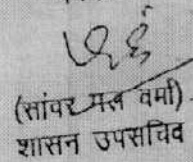 (सांवर मल वर्मा)
शासन उपसचिव